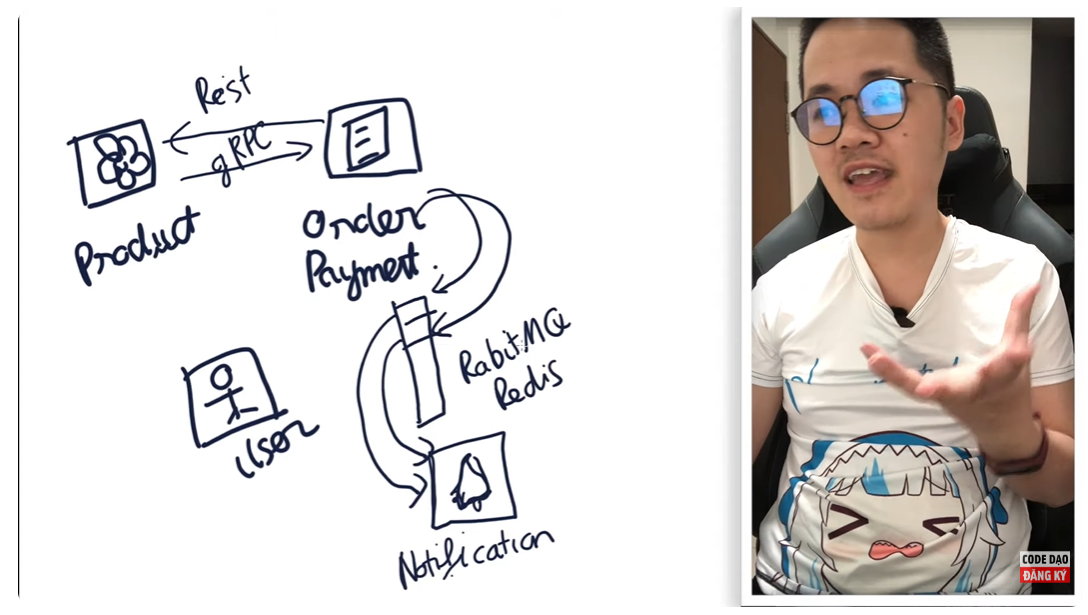 Rest
gRPC
Product
Order
Payment.
RabitMQ
Redis
User
Notification
CODE DẠO
ĐĂNG KÝ